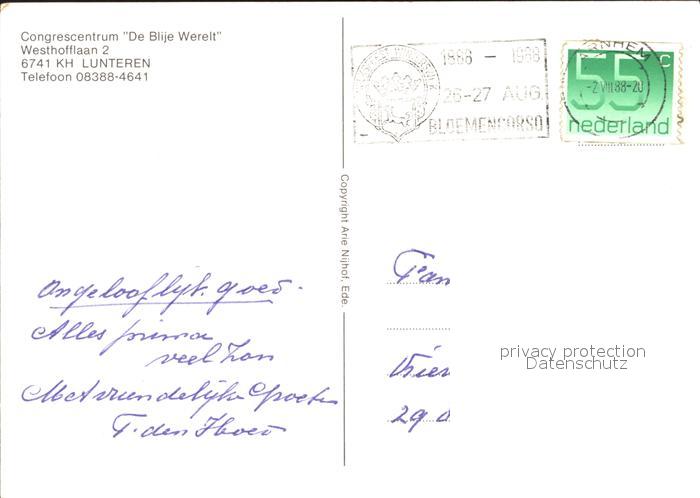 Congrescentrum "De Blije Werelt"
Westhofflaan 2
6741 KH LUNTEREN
Telefoon 08388-4641
1888 - 1988
26-27 AUG.
BLOEMENCORSO
ARNHEM
-2.VIII.88-20
55 c
nederland
Copyright Arie Nijhof, Ede.
Ongelooflijk goed.
Alles prima
veel zon
Met vriendelijke Groeten
T. den
Fam
29 a
privacy protection
Datenschutz